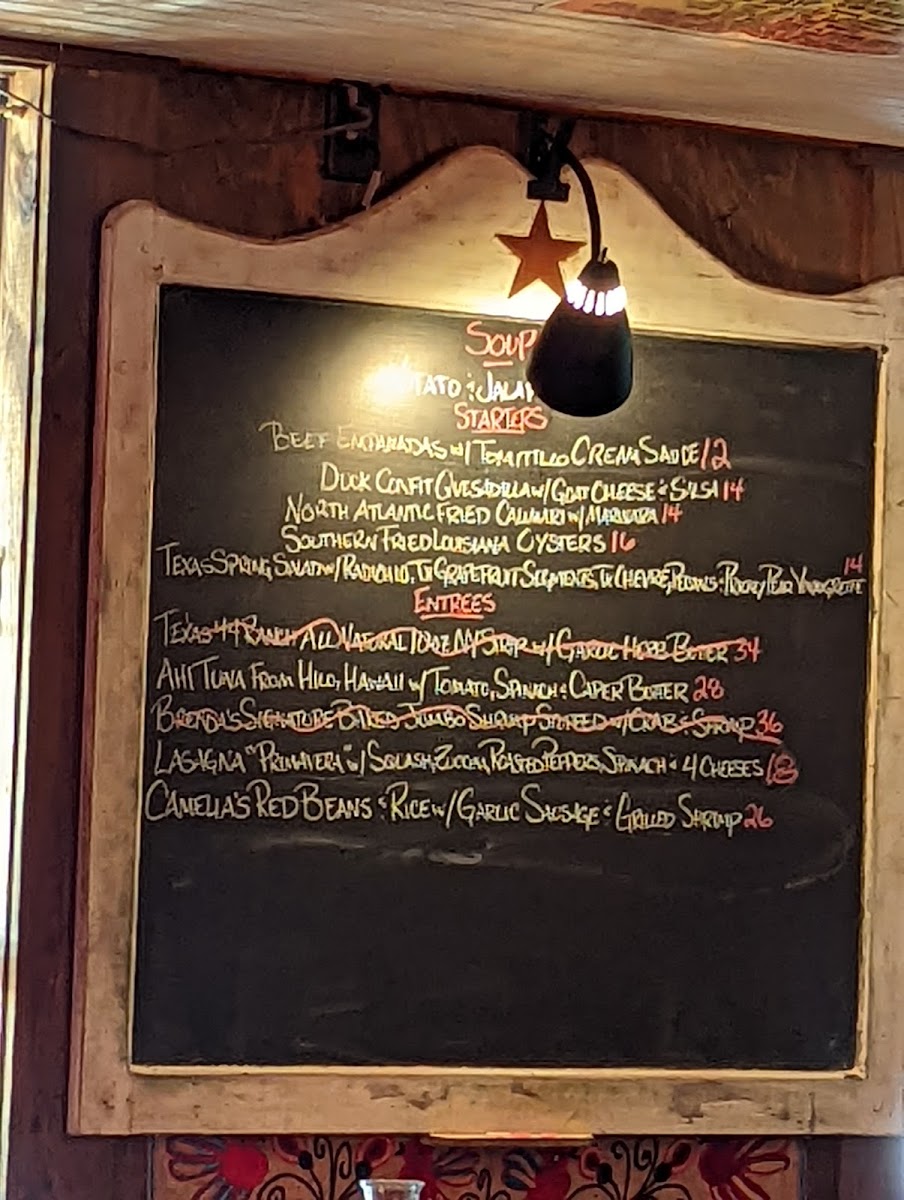 SOUP
TATO & JALAP
STARTERS
BEEF EMPANADAS W/ TOMITILLO CREAM SAUCE 12
DUCK CONFIT QUESADILLA W/ GOAT CHEESE & SALSA 14
NORTH ATLANTIC FRIED CALAMARI W/ MARINARA 14
SOUTHERN FRIED LOUISIANA OYSTERS 16
TEXAS SPRING SALAD W/ RADICCHIO, TX GRAPEFRUIT SEGMENTS, TX CHEVRE, PECANS & PRICKLY PEAR VINAIGRETTE 14
ENTREES
TEXAS 44 RANCH ALL NATURAL 10 OZ NY STRIP W/ GARLIC HERB BUTTER 34
AHI TUNA FROM HILO, HAWAII W/ TOMATO, SPINACH & CAPER BUTTER 28
BRENDA'S SIGNATURE BAKED JUMBO SHRIMP STUFFED W/ CRAB & SHRIMP 36
LASAGNA "PRIMAVERA" W/ SQUASH, ZUCCHINI, ROASTED PEPPERS, SPINACH & 4 CHEESES 18
CAMELLIA'S RED BEANS & RICE W/ GARLIC SAUSAGE & GRILLED SHRIMP 26